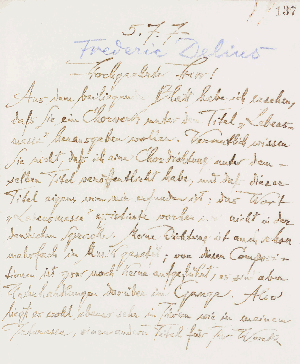 137
5.7.7.
Frederic Delius
Hochgeehrter Herr!
Aus dem beiliegenden Blatt habe ich ersehen,
daß Sie ein Chorwerk unter dem Titel „Lebens-
messe" herausgeben wollen. Vermutlich wissen
Sie nicht, daß ich eine Chordichtung unter dem-
selben Titel veröffentlicht habe, und daß dieser
Titel eigens von mir erfunden ist; das Wort
„Lebensmesse" existierte vorher nicht in der
deutschen Sprache. Meine Dichtung ist auch schon
mehrfach in Musik gesetzt; von diesen Composi-
tionen ist zwar noch keine aufgeführt, es
Unterhandlungen darüber im Gange. Aber
in meinem
Titel für Ihr Werk